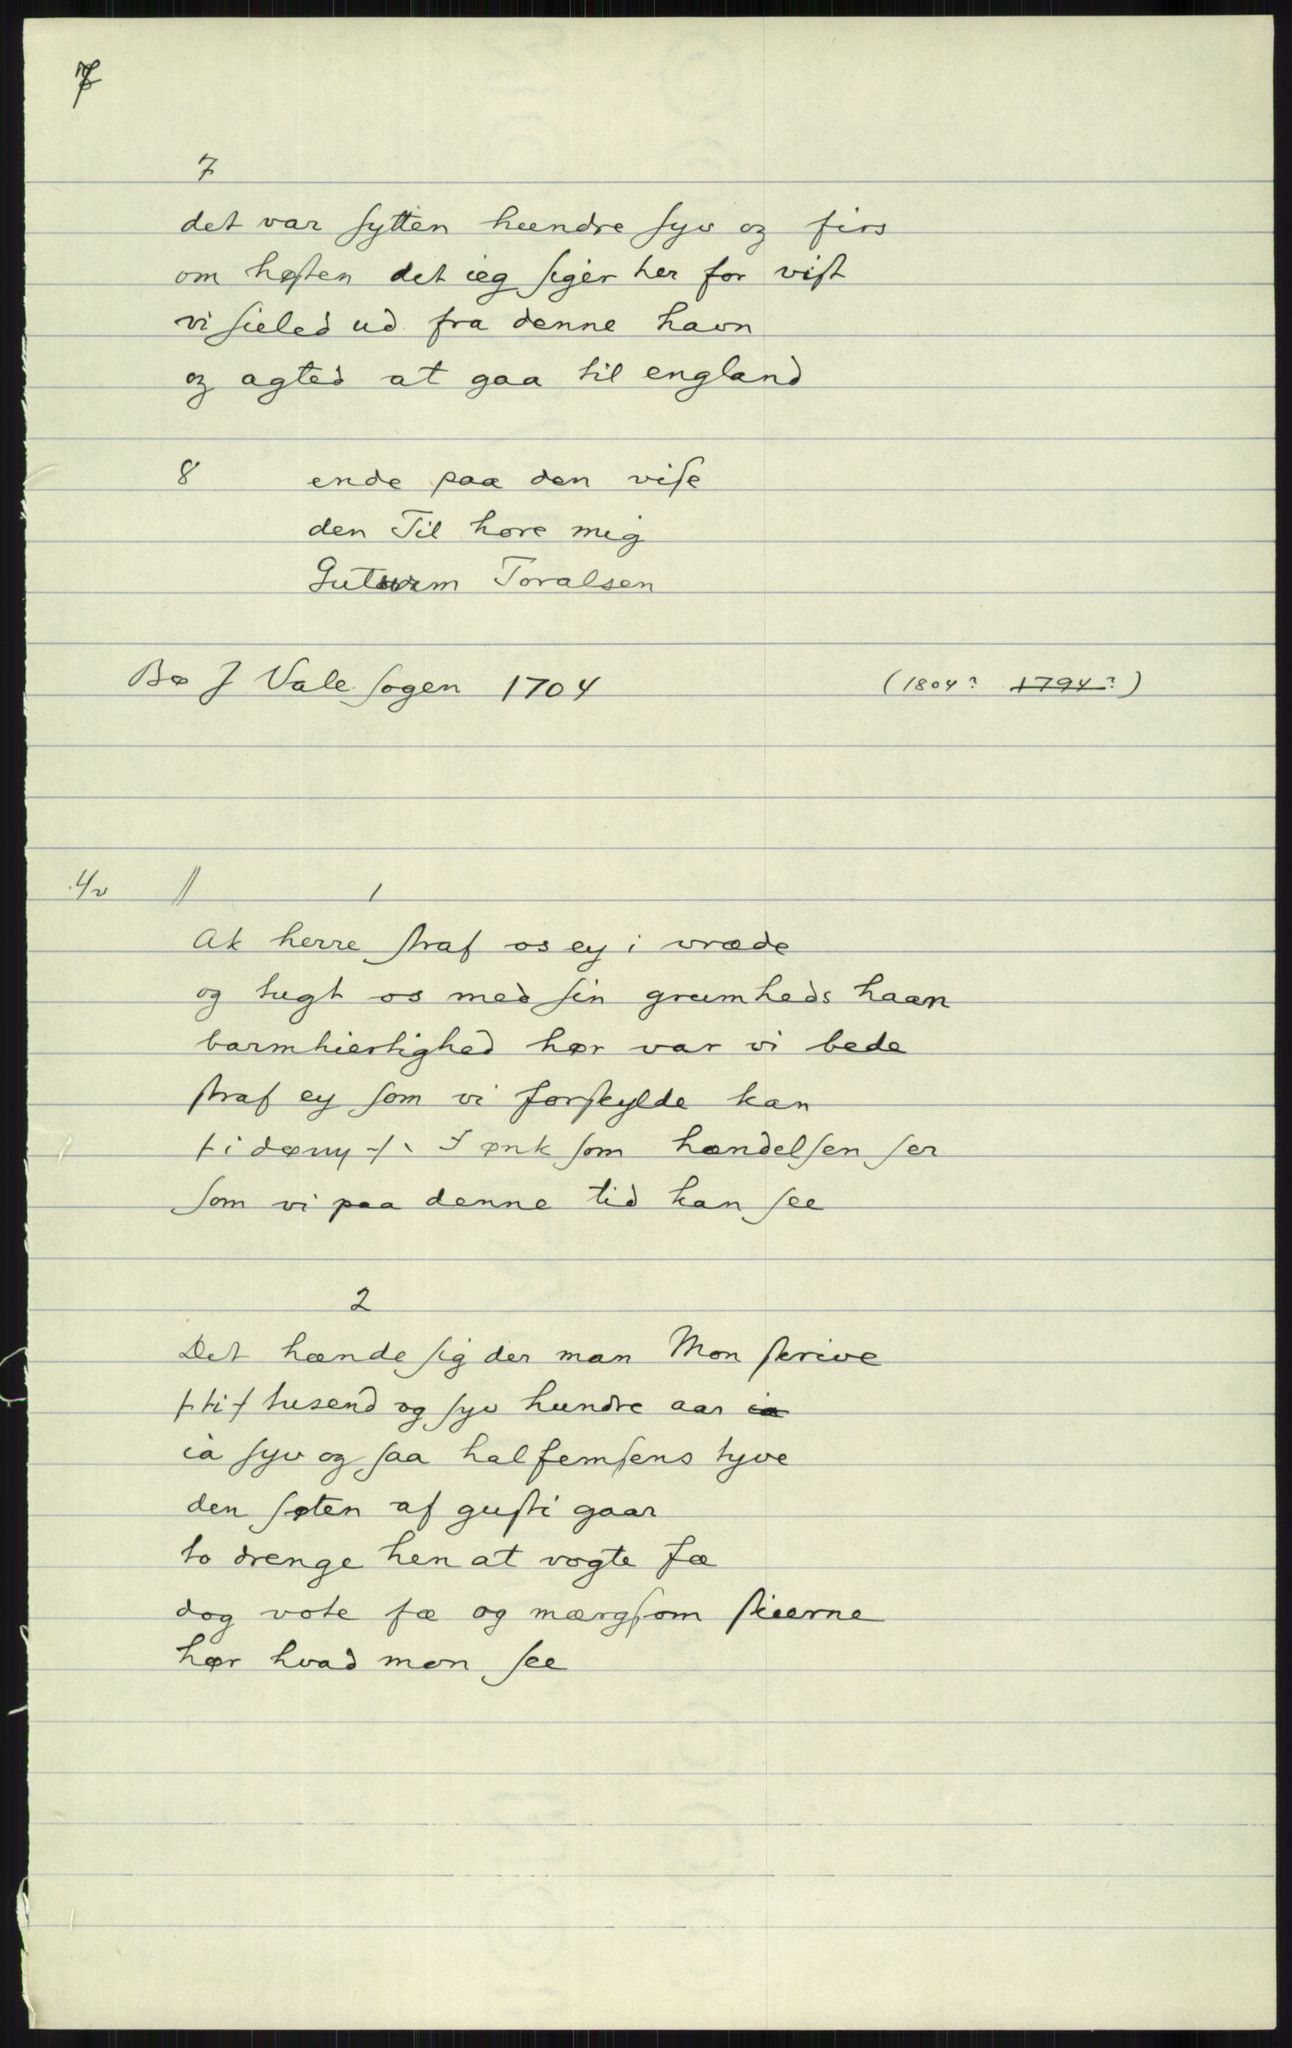 7
7
det var sytten hundre syv og firs
om høsten det ieg siger her for vist
vi sieled ud fra denne havn
og agted at gaa til england
8 ende paa den vise
den Til høre mig
Guttorm Toralsen
Bø J Vale sogen 1704 (1804? 1794?)
4v || 1
Ak herre straf os ey i vræde
og tugt os med sin grumheds haan
barmhiertighed hør var vi bede
straf ey som vi forskylde kan
som hændelsen ser
som vi paa denne tid kan see
2
Det hænde sig der man Mon skrive
+ ti + tusend og syv hundre aar ia
ia syv og saa halfemsens tyve
den søten af gusti gaar
to drenge hen at vogte fæ
dog vote fæ og mærgsom stierne
hør hvad mon see